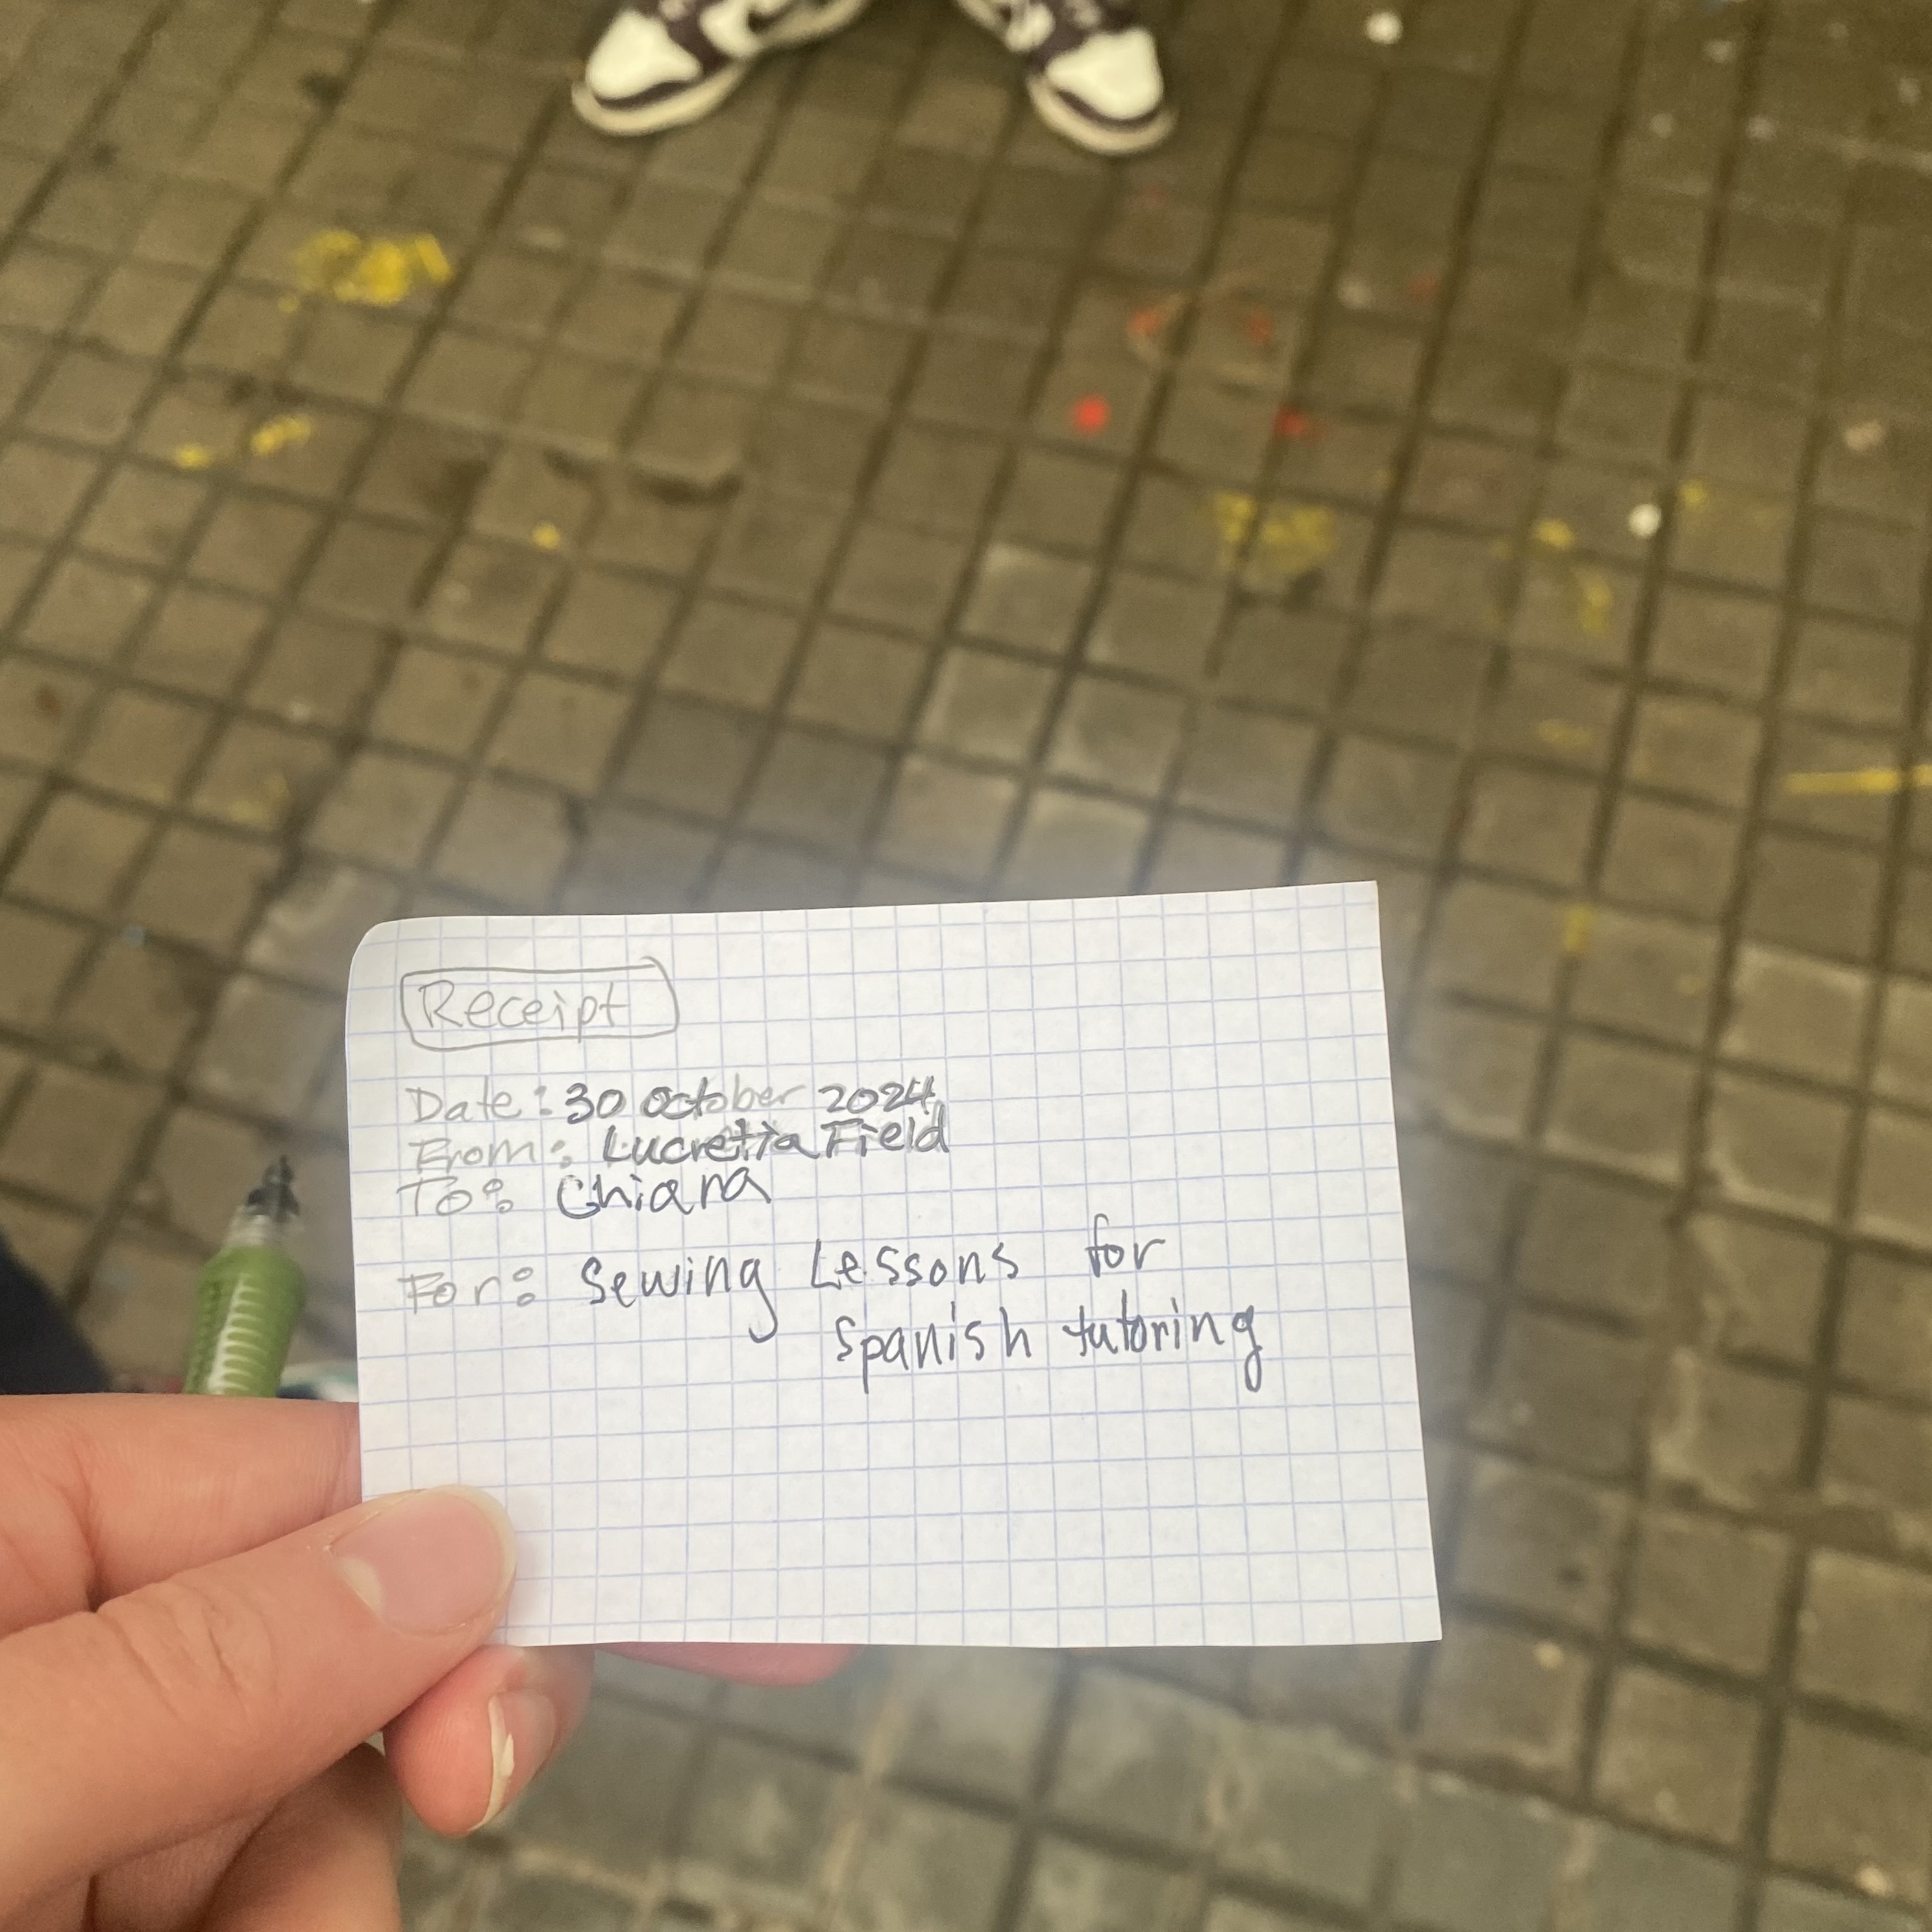 Receipt
Date: 30 October 2024
From: Lucretia Field
To: Chiara
For: Sewing Lessons for
Spanish tutoring